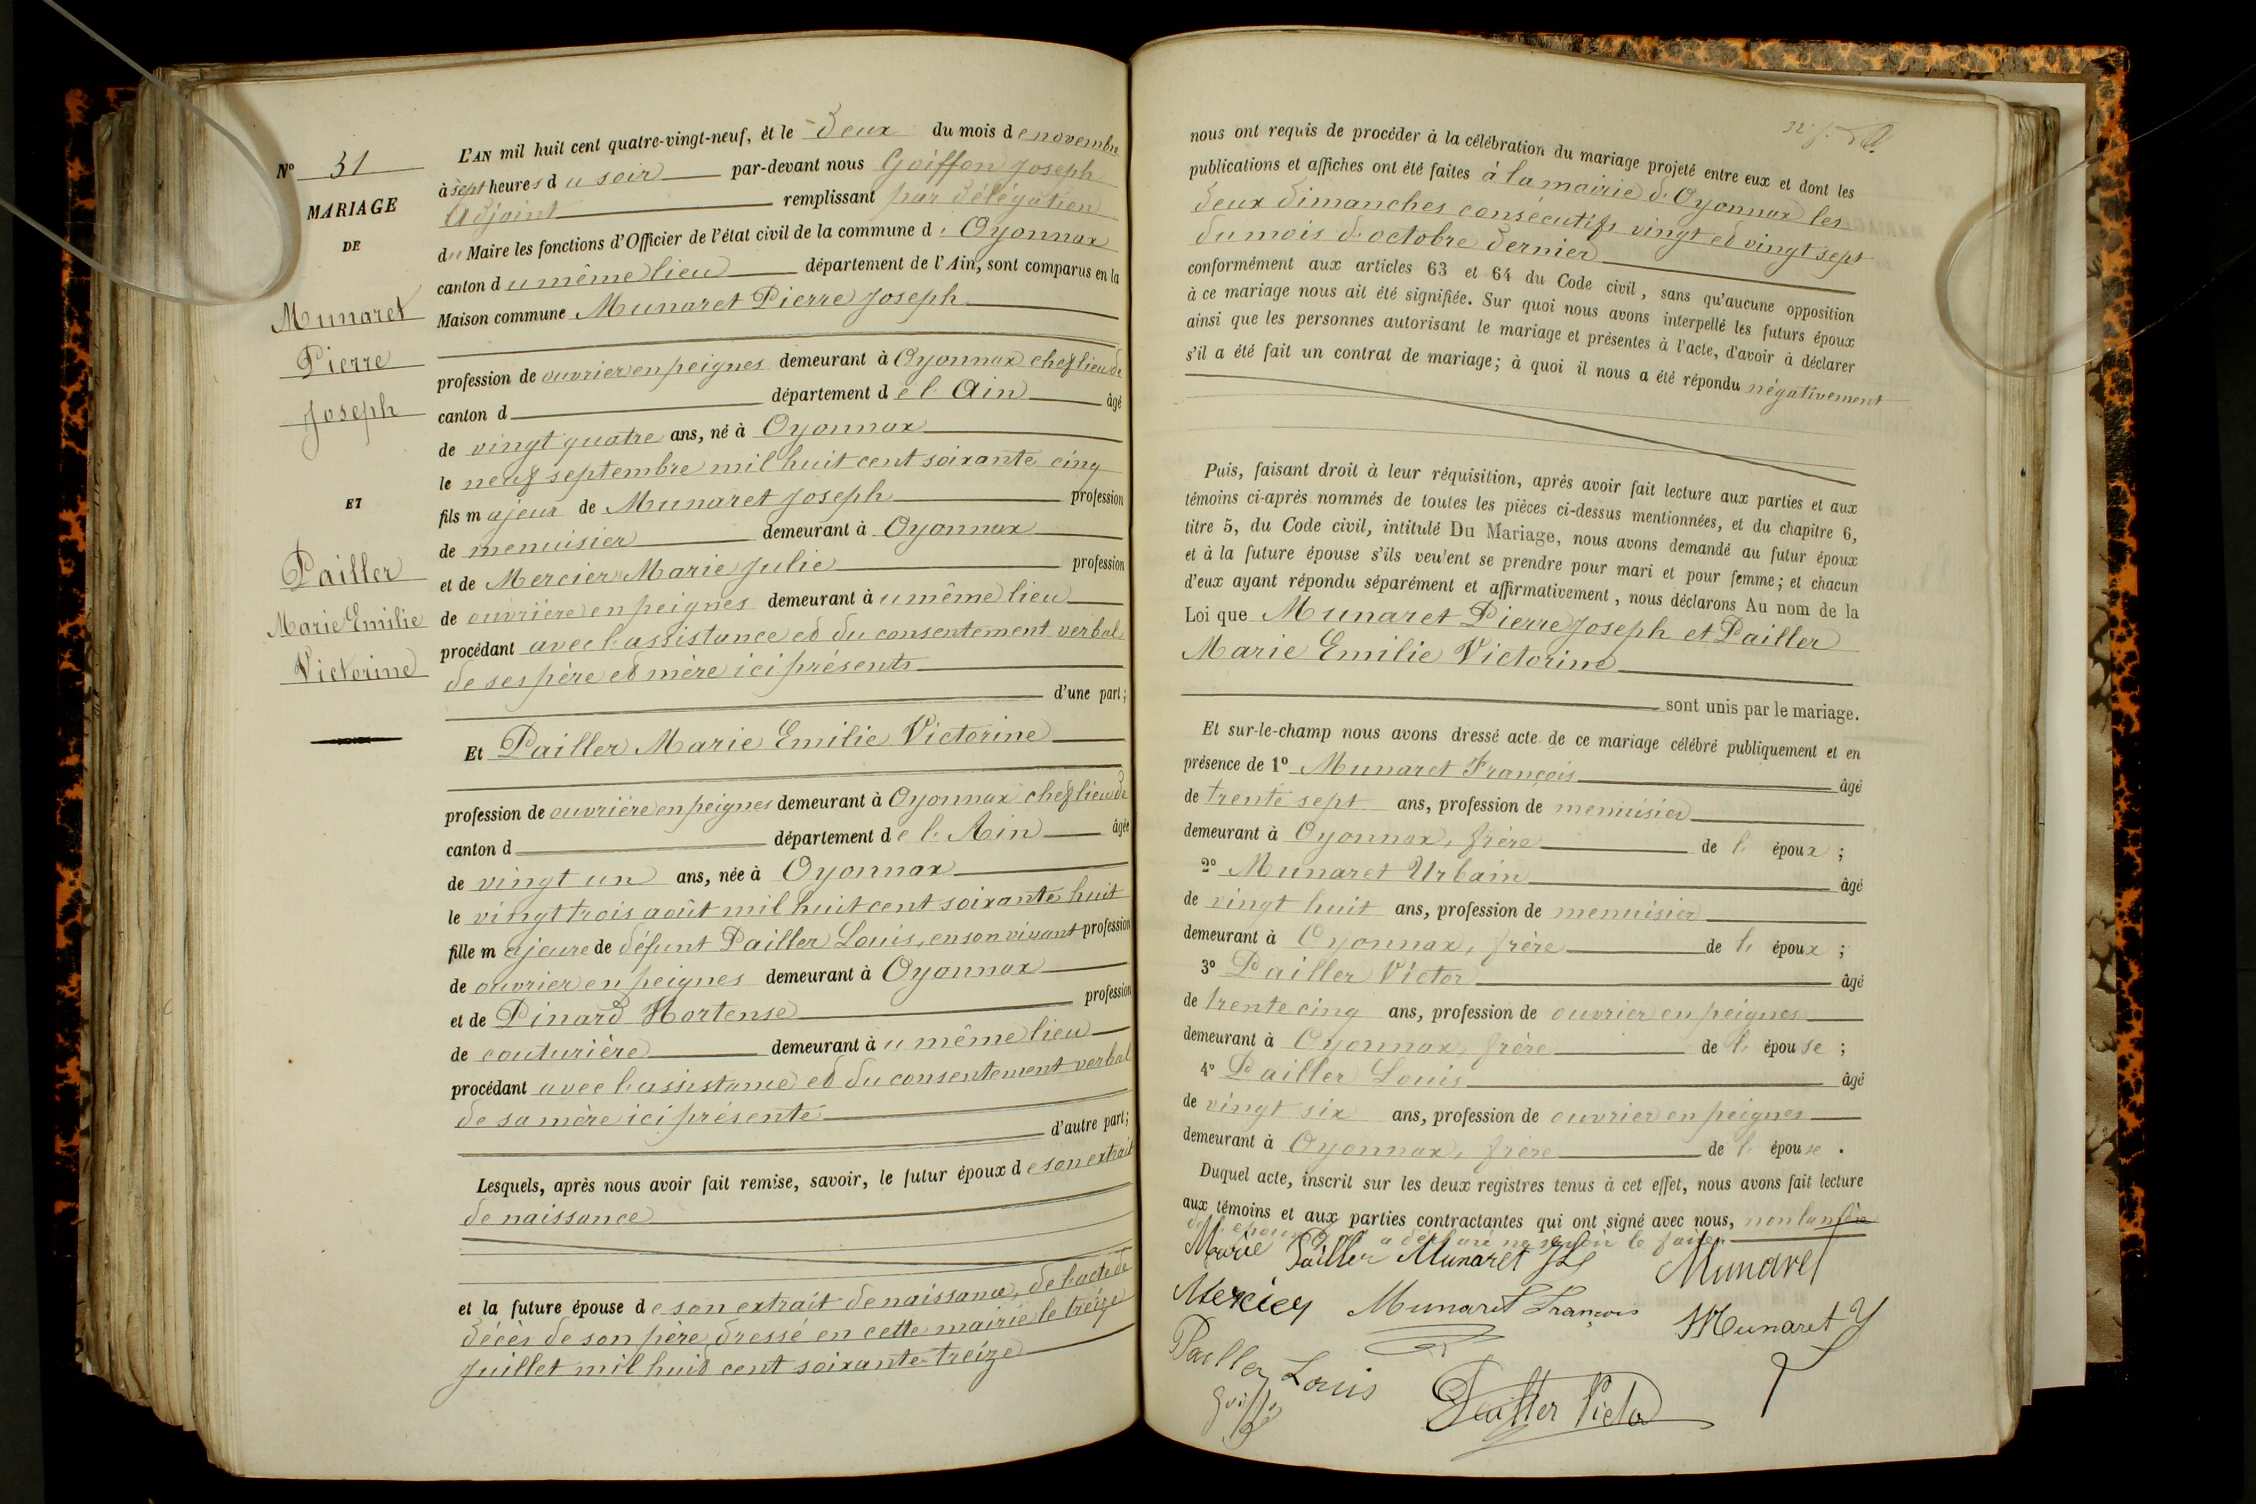 N° 31
MARIAGE
DE
Munaret
Pierre
Joseph
ET
Pailler
Marie Emilie
Victorine
L'AN mil huit cent quatre-vingt-neuf, et le deux du mois de novembre
à sept heures du soir par-devant nous Goiffon Joseph
Adjoint remplissant par délégation
du Maire les fonctions d'Officier de l'état civil de la commune d'Oyonnax
canton du même lieu département de l'Ain, sont comparus en la
Maison commune Munaret Pierre Joseph
profession de ouvrier en peignes demeurant à Oyonnax chef lieu de
canton d département de l'Ain âgé
de vingt quatre ans, né à Oyonnax
le neuf septembre mil huit cent soixante cinq
fils majeur de Munaret Joseph profession
de menuisier demeurant à Oyonnax
et de Mercier Marie Julie profession
de ouvrière en peignes demeurant au même lieu
procédant avec l'assistance et du consentement verbal
de ses père et mère ici présents
d'une part;
Et Pailler Marie Emilie Victorine
profession de ouvrière en peignes demeurant à Oyonnax chef lieu de
canton d département de l'Ain âgée
de vingt un ans, née à Oyonnax
le vingt trois août mil huit cent soixante huit
fille majeure de défunt Pailler Louis, en son vivant profession
de ouvrier en peignes demeurant à Oyonnax
et de Pinard Hortense profession
de couturière demeurant au même lieu
procédant avec l'assistance et du consentement verbal
de sa mère ici présente
d'autre part;
Lesquels, après nous avoir fait remise, savoir, le futur époux de son extrait
de naissance
et la future épouse de son extrait de naissance, de l'acte de
décès de son père dressé en cette mairie le treize
juillet mil huit cent soixante-treize
nous ont requis de procéder à la célébration du mariage projeté entre eux et dont les
publications et affiches ont été faites à la mairie d'Oyonnax les
deux dimanches consécutifs vingt et vingt sept
du mois d'octobre dernier
conformément aux articles 63 et 64 du Code civil, sans qu'aucune opposition
à ce mariage nous ait été signifiée. Sur quoi nous avons interpellé les futurs époux
ainsi que les personnes autorisant le mariage et présentes à l'acte, d'avoir à déclarer
s'il a été fait un contrat de mariage; à quoi il nous a été répondu négativement
Puis, faisant droit à leur réquisition, après avoir fait lecture aux parties et aux
témoins ci-après nommés de toutes les pièces ci-dessus mentionnées, et du chapitre 6,
titre 5, du Code civil, intitulé Du Mariage, nous avons demandé au futur époux
et à la future épouse s'ils veulent se prendre pour mari et pour femme; et chacun
d'eux ayant répondu séparément et affirmativement, nous déclarons Au nom de la
Loi que Munaret Pierre Joseph et Pailler
Marie Emilie Victorine
sont unis par le mariage.
Et sur-le-champ nous avons dressé acte de ce mariage célébré publiquement et en
présence de 1° Munaret François âgé
de trente sept ans, profession de menuisier
demeurant à Oyonnax, frère de l'époux;
2° Munaret Urbain âgé
de vingt huit ans, profession de menuisier
demeurant à Oyonnax, frère de l'époux;
3° Pailler Victor âgé
de trente cinq ans, profession de ouvrier en peignes
demeurant à Oyonnax, frère de l'épouse;
4° Pailler Louis âgé
de vingt six ans, profession de ouvrier en peignes
demeurant à Oyonnax, frère de l'épouse.
Duquel acte, inscrit sur les deux registres tenus à cet effet, nous avons fait lecture
aux témoins et aux parties contractantes qui ont signé avec nous, non
a déclaré ne savoir le faire.
Marie Pailler Munaret Munaret
Mercier Munaret François Munaret U
Pailler Louis Pailler Victor